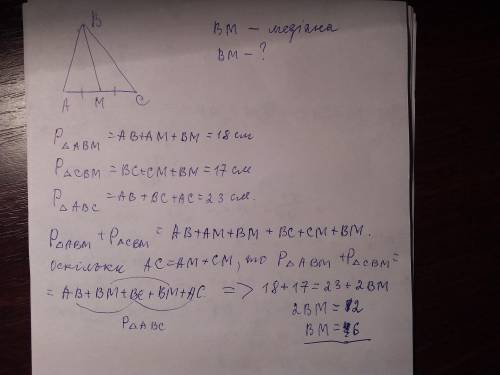 B
BM – медіана
BM – ?
A M C
P△ABM = AB+AM+BM = 18 см
P△CBM = BC+CM+BM = 17 см
P△ABC = AB+BC+AC = 23 см.
P△ABM + P△CBM = AB+AM+BM + BC+CM+BM.
оскільки AC=AM+CM, то P△ABM + P△CBM =
= AB+BM+BC+BM+AC => 18+17=23+2BM
P△ABC
2BM = 12
BM = 6